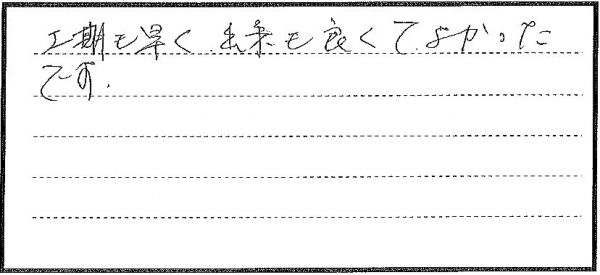 工期も早く出来も良くてよかった
です。